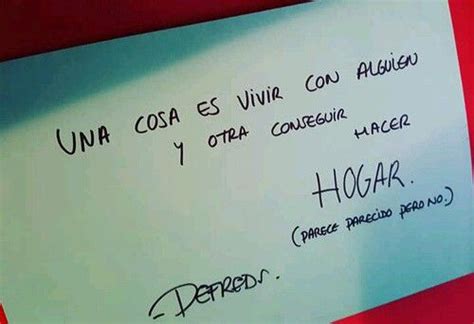 UNA COSA ES VIVIR CON ALGUIEN
Y OTRA CONSEGUIR HACER
HOGAR.
(PARECE PARECIDO PERO NO.)
-DEFREDS.